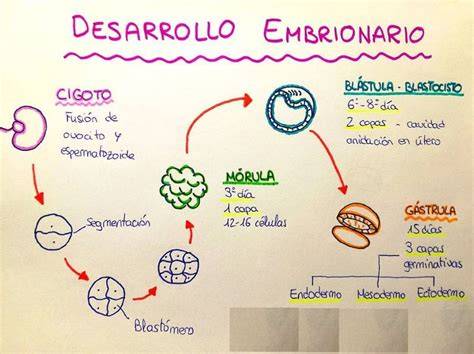 DESARROLLO EMBRIONARIO
CIGOTO
Fusión de
ovocito y
espermatozoide
Segmentación
Blastómero
MÓRULA
3er día
1 capa
12-16 células
BLÁSTULA - BLASTOCISTO
6º-8º día
2 capas - cavidad
anidación en útero
GÁSTRULA
15 días
3 capas
germinativas
Endodermo Mesodermo Ectodermo